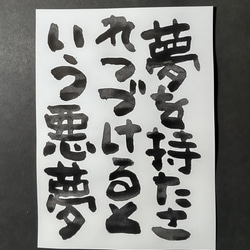 夢を持たさ
れつづけると
いう悪夢